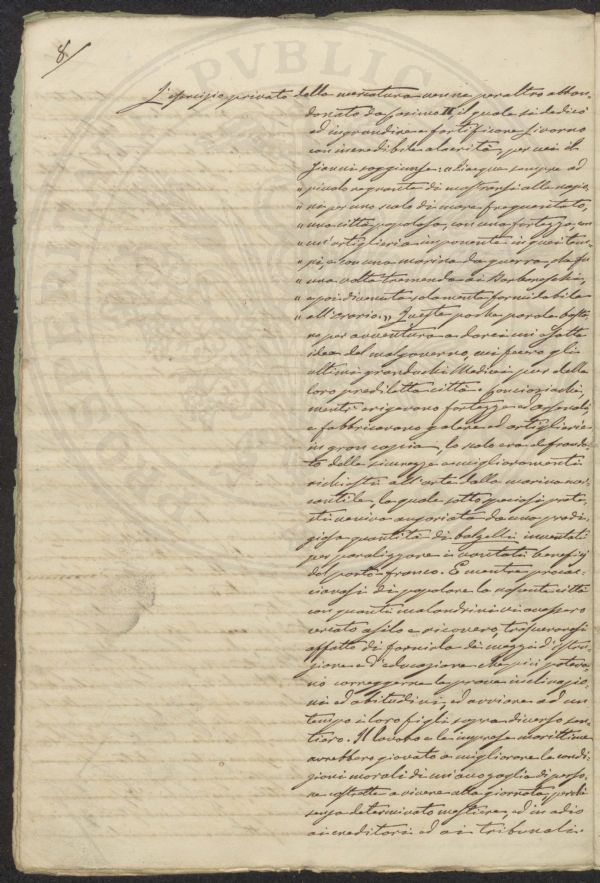 8/
L'esercizio privato della mercatura venne per altro abban-
donato da Cosimo II il quale si dedicò
ad ingrandire e fortificare Livorno
con incredibile alacrità, per cui il
Gianni soggiunse: "Piacque sempre ad
" piccolo regnante di mostrarsi alle nazio-
" ni per uno scalo di mare frequentato,
" una città popolosa, con una fortezza, con
" un'artiglieria imponente in quei tem-
" pi, e con una marina da guerra, che fu
" una volta tremenda ai Barbareschi,
" e poi diventa solamente formidabile
" all'Erario." Queste poche parole basta-
no per avventura a darci un'esatta
idea del malgoverno, cui fecero gli
ultimi granduchi Medicei pur della
loro prediletta città. Conciosiachè,
mentr'erigevano fortezze ed arsenali,
e fabbricavano galere ed artiglierie
in gran copia, lo scalo era defrauda-
to della sicurezza e miglioramenti
richiesti all'arte dalla marina mer-
cantile, la quale sotto speciosi prete-
sti veniva angariata da una prodi-
giosa quantità di balzelli inventati
per paralizzare i vantati benefizj
di porto-franco. E mentre procac-
ciavasi di popolare la nascente città
con quanti malandrini vi avessero
cercato asilo e ricovero, trascuravasi
affatto di fornirla di mezzi d'istru-
zione e d'educazione che più poteva-
no correggerne le prave inclinazio-
ni ed abitudini, ed avviare ad un
tempo i loro figli sopra diverso sen-
tiero. Il lavoro e le imprese marittime
avrebbero giovato a migliorare le condi-
zioni morali di un'accozzaglia di perso-
ne costrette a vivere alla giornata, perchè
senza determinato mestiere, ed in odio
ai creditori ed ai tribunali.